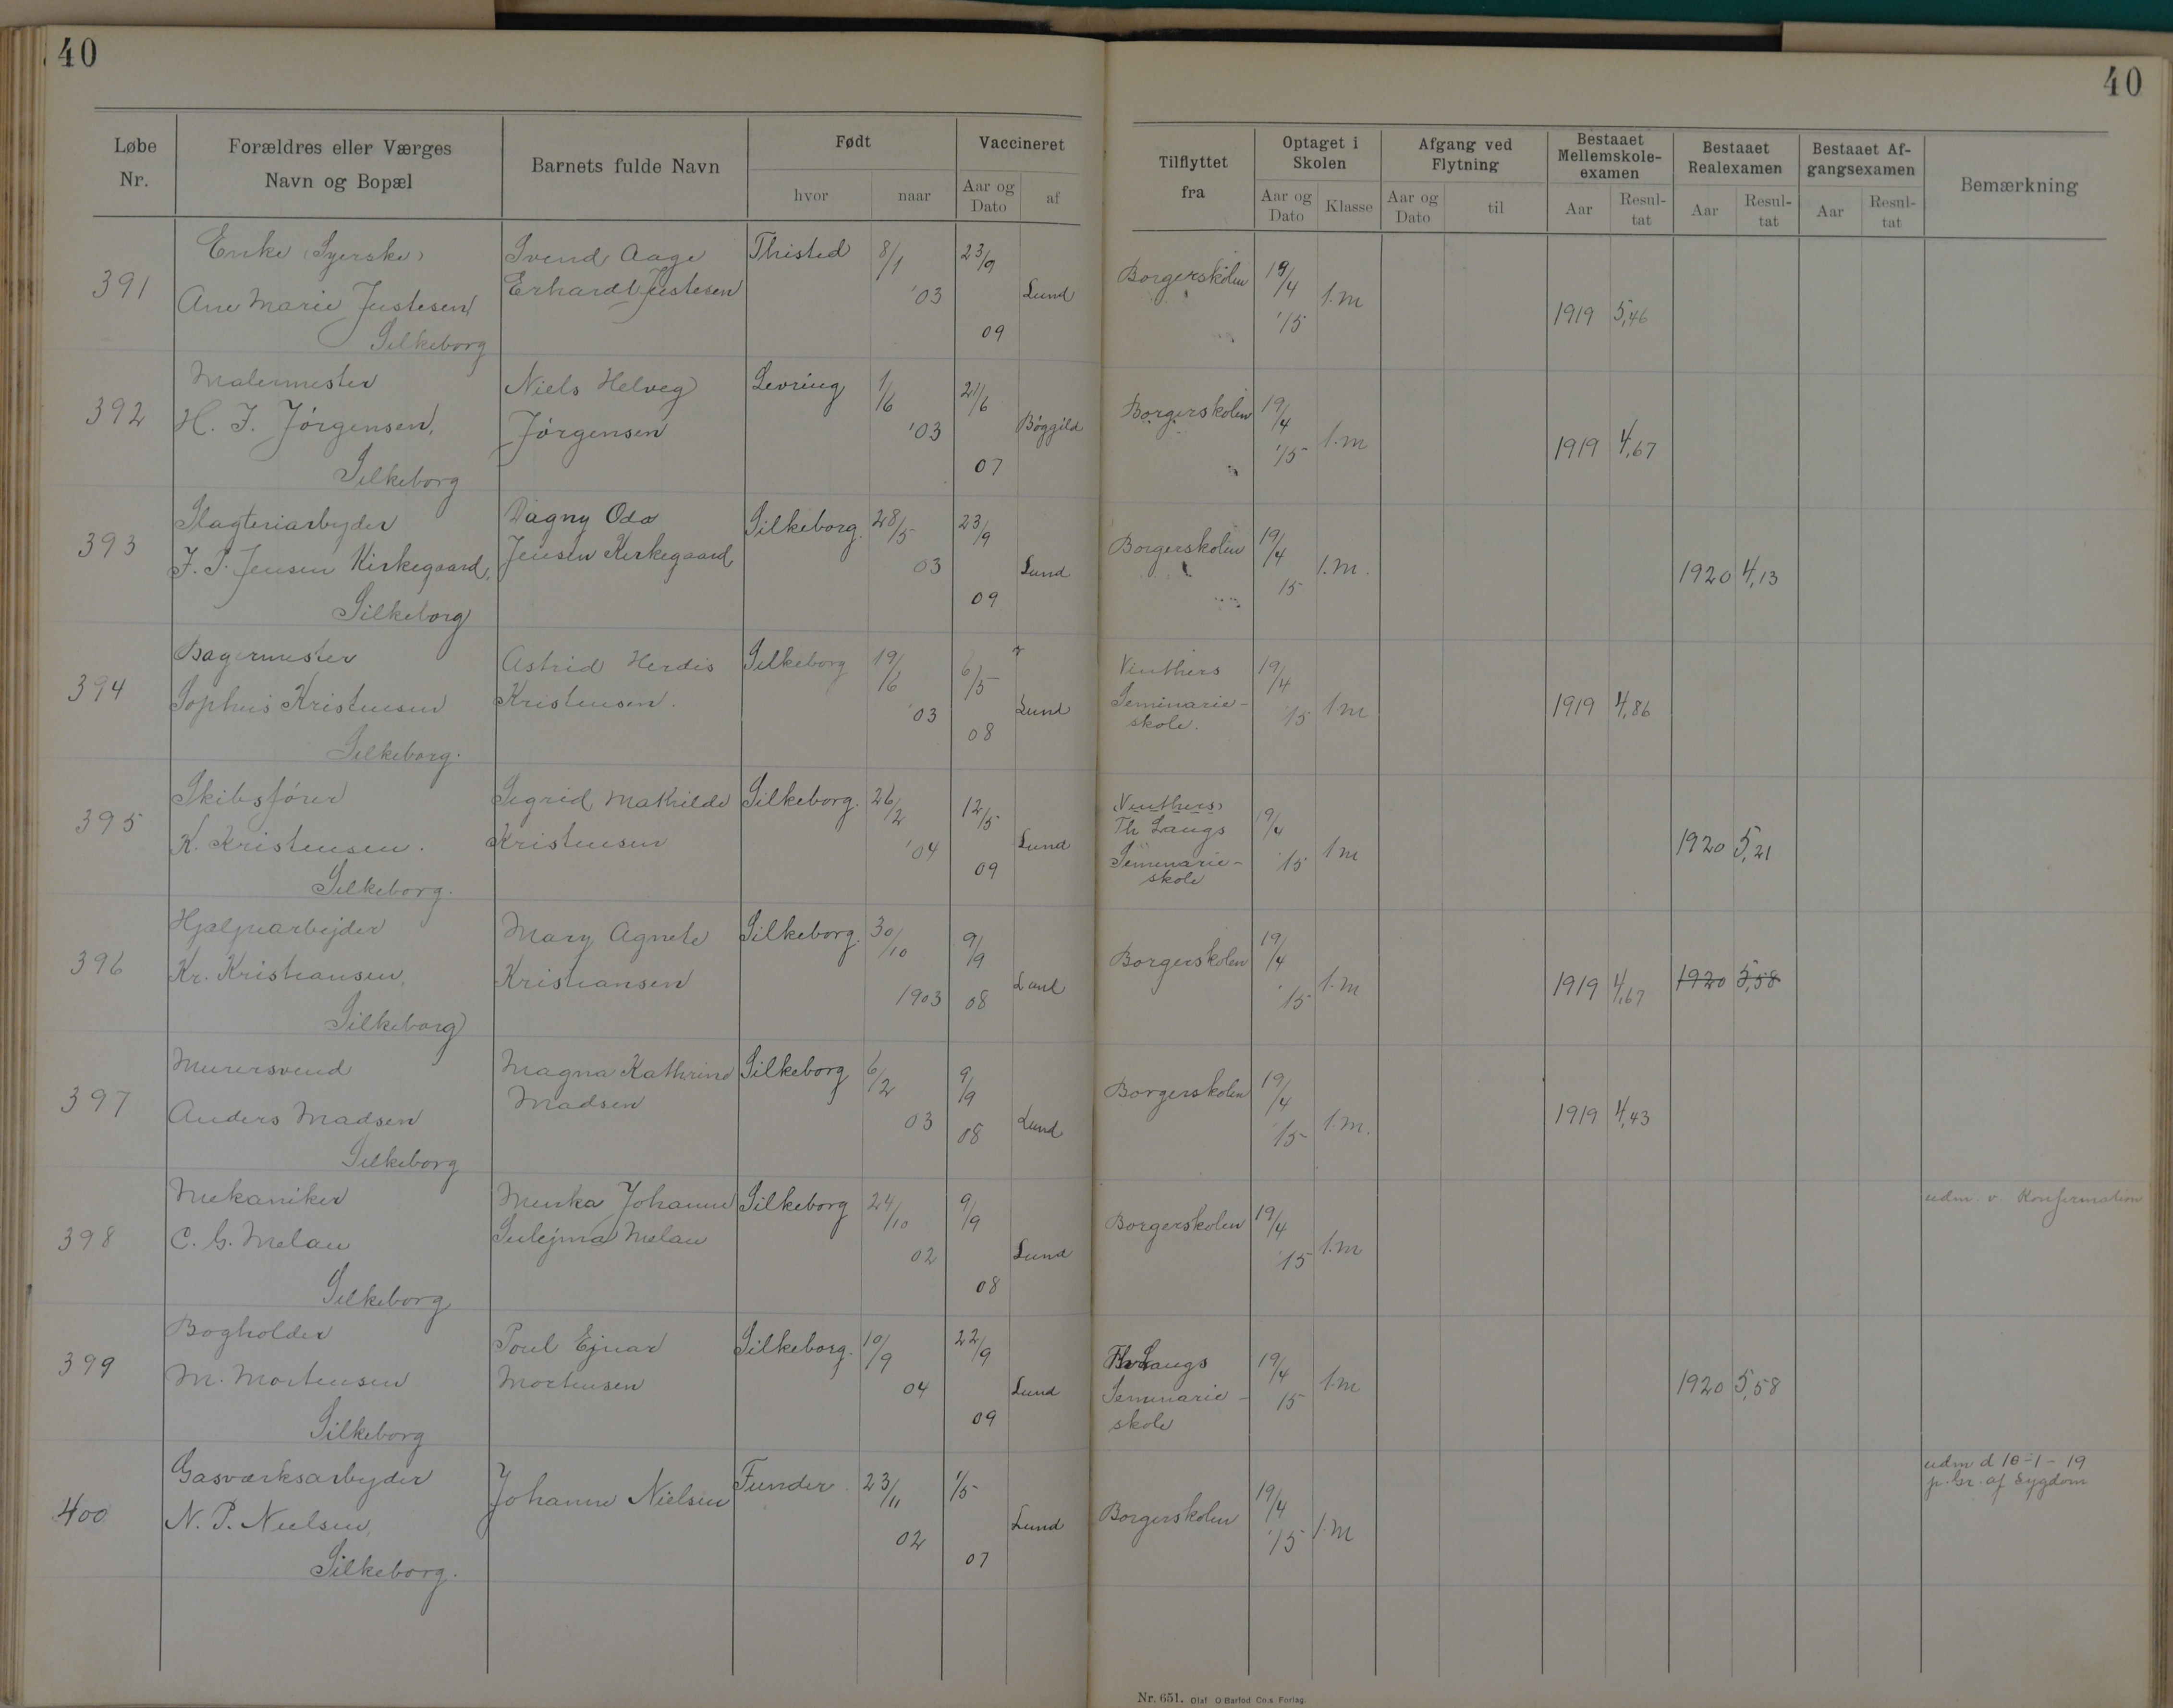 40
40
Løbe Nr.
Forældres eller Værges Navn og Bopæl
Barnets fulde Navn
Født
hvor
naar
Vaccineret
Aar og Dato
af
Tilflyttet fra
Optaget i Skolen
Aar og Dato
Klasse
Afgang ved Flytning
Aar og Dato
til
Bestaaet Mellemskole-examen
Aar
Resul-tat
Bestaaet Realexamen
Aar
Resul-tat
Bestaaet Af-gangsexamen
Aar
Resul-tat
Bemærkning
391 Enke (Syerske) Svend Aage Thisted 8/1 23/9 Borgerskolen 19/4 1.m
Ane Marie Justesen Erhardt Justesen '03 Lund '15 1919 5,46
Silkeborg 09
392 Malermester Niels Helveg Levring 1/6 21/6 Borgerskolen 19/4 1.m
H. J. Jørgensen, Jørgensen '03 Bøggild '15 1919 4,67
Silkeborg 07
393 Slagteriarbejder Dagny Oda Silkeborg. 28/5 23/9 Borgerskolen 19/4 1.m.
J. P. Jensen Kirkegaard, Jensen Kirkegaard 03 Lund 15 1920 4,13
Silkeborg 09
394 Bagermester Astrid Herdis Silkeborg 19/6 6/5 Vinthers 19/4
Sophus Kristensen Kristensen. '03 Lund Seminarie- '15 1.m 1919 4,86
Silkeborg. 08 skole.
395 Skibsfører Sigrid Mathilde Silkeborg. 26/2 12/5 Vinthers 19/4
K. Kristensen. Kristensen '04 Lund Th Langs '15 1m 1920 5,21
Silkeborg. 09 Seminarie-
skole
396 Hjælpearbejder Mary Agnete Silkeborg. 30/10 9/9 Borgerskolen 19/4
Kr. Kristiansen, Kristiansen 1903 08 Lund '15 1.m 1919 4,67 1920 5,58
Silkeborg
397 Murersvend Magna Kathrine Silkeborg 6/2 9/9 Borgerskolen 19/4
Anders Madsen Madsen 03 08 Lund '15 1.m. 1919 4,43
Silkeborg
398 Mekaniker Johanne Silkeborg 24/10 9/9 Borgerskolen 19/4 udm. v. Konfirmation
C. G. Melau Melau 02 Lund '15 1.m
Silkeborg 08
399 Bogholder Poul Ejnar Silkeborg. 10/9 22/9 Langs 19/4
M. Mortensen Mortensen 04 Lund Seminarie- 15 1.m 1920 5,58
Silkeborg 09 skole
400 Gasværksarbejder Johanne Nielsen Funder. 23/11 1/5 Borgerskolen 19/4 udm d 10-1-19
N. P. Nielsen, 02 Lund '15 1.m p. Gr. af Sygdom
Silkeborg. 07
Nr. 651. Olaf O Barfod Co:s Forlag.